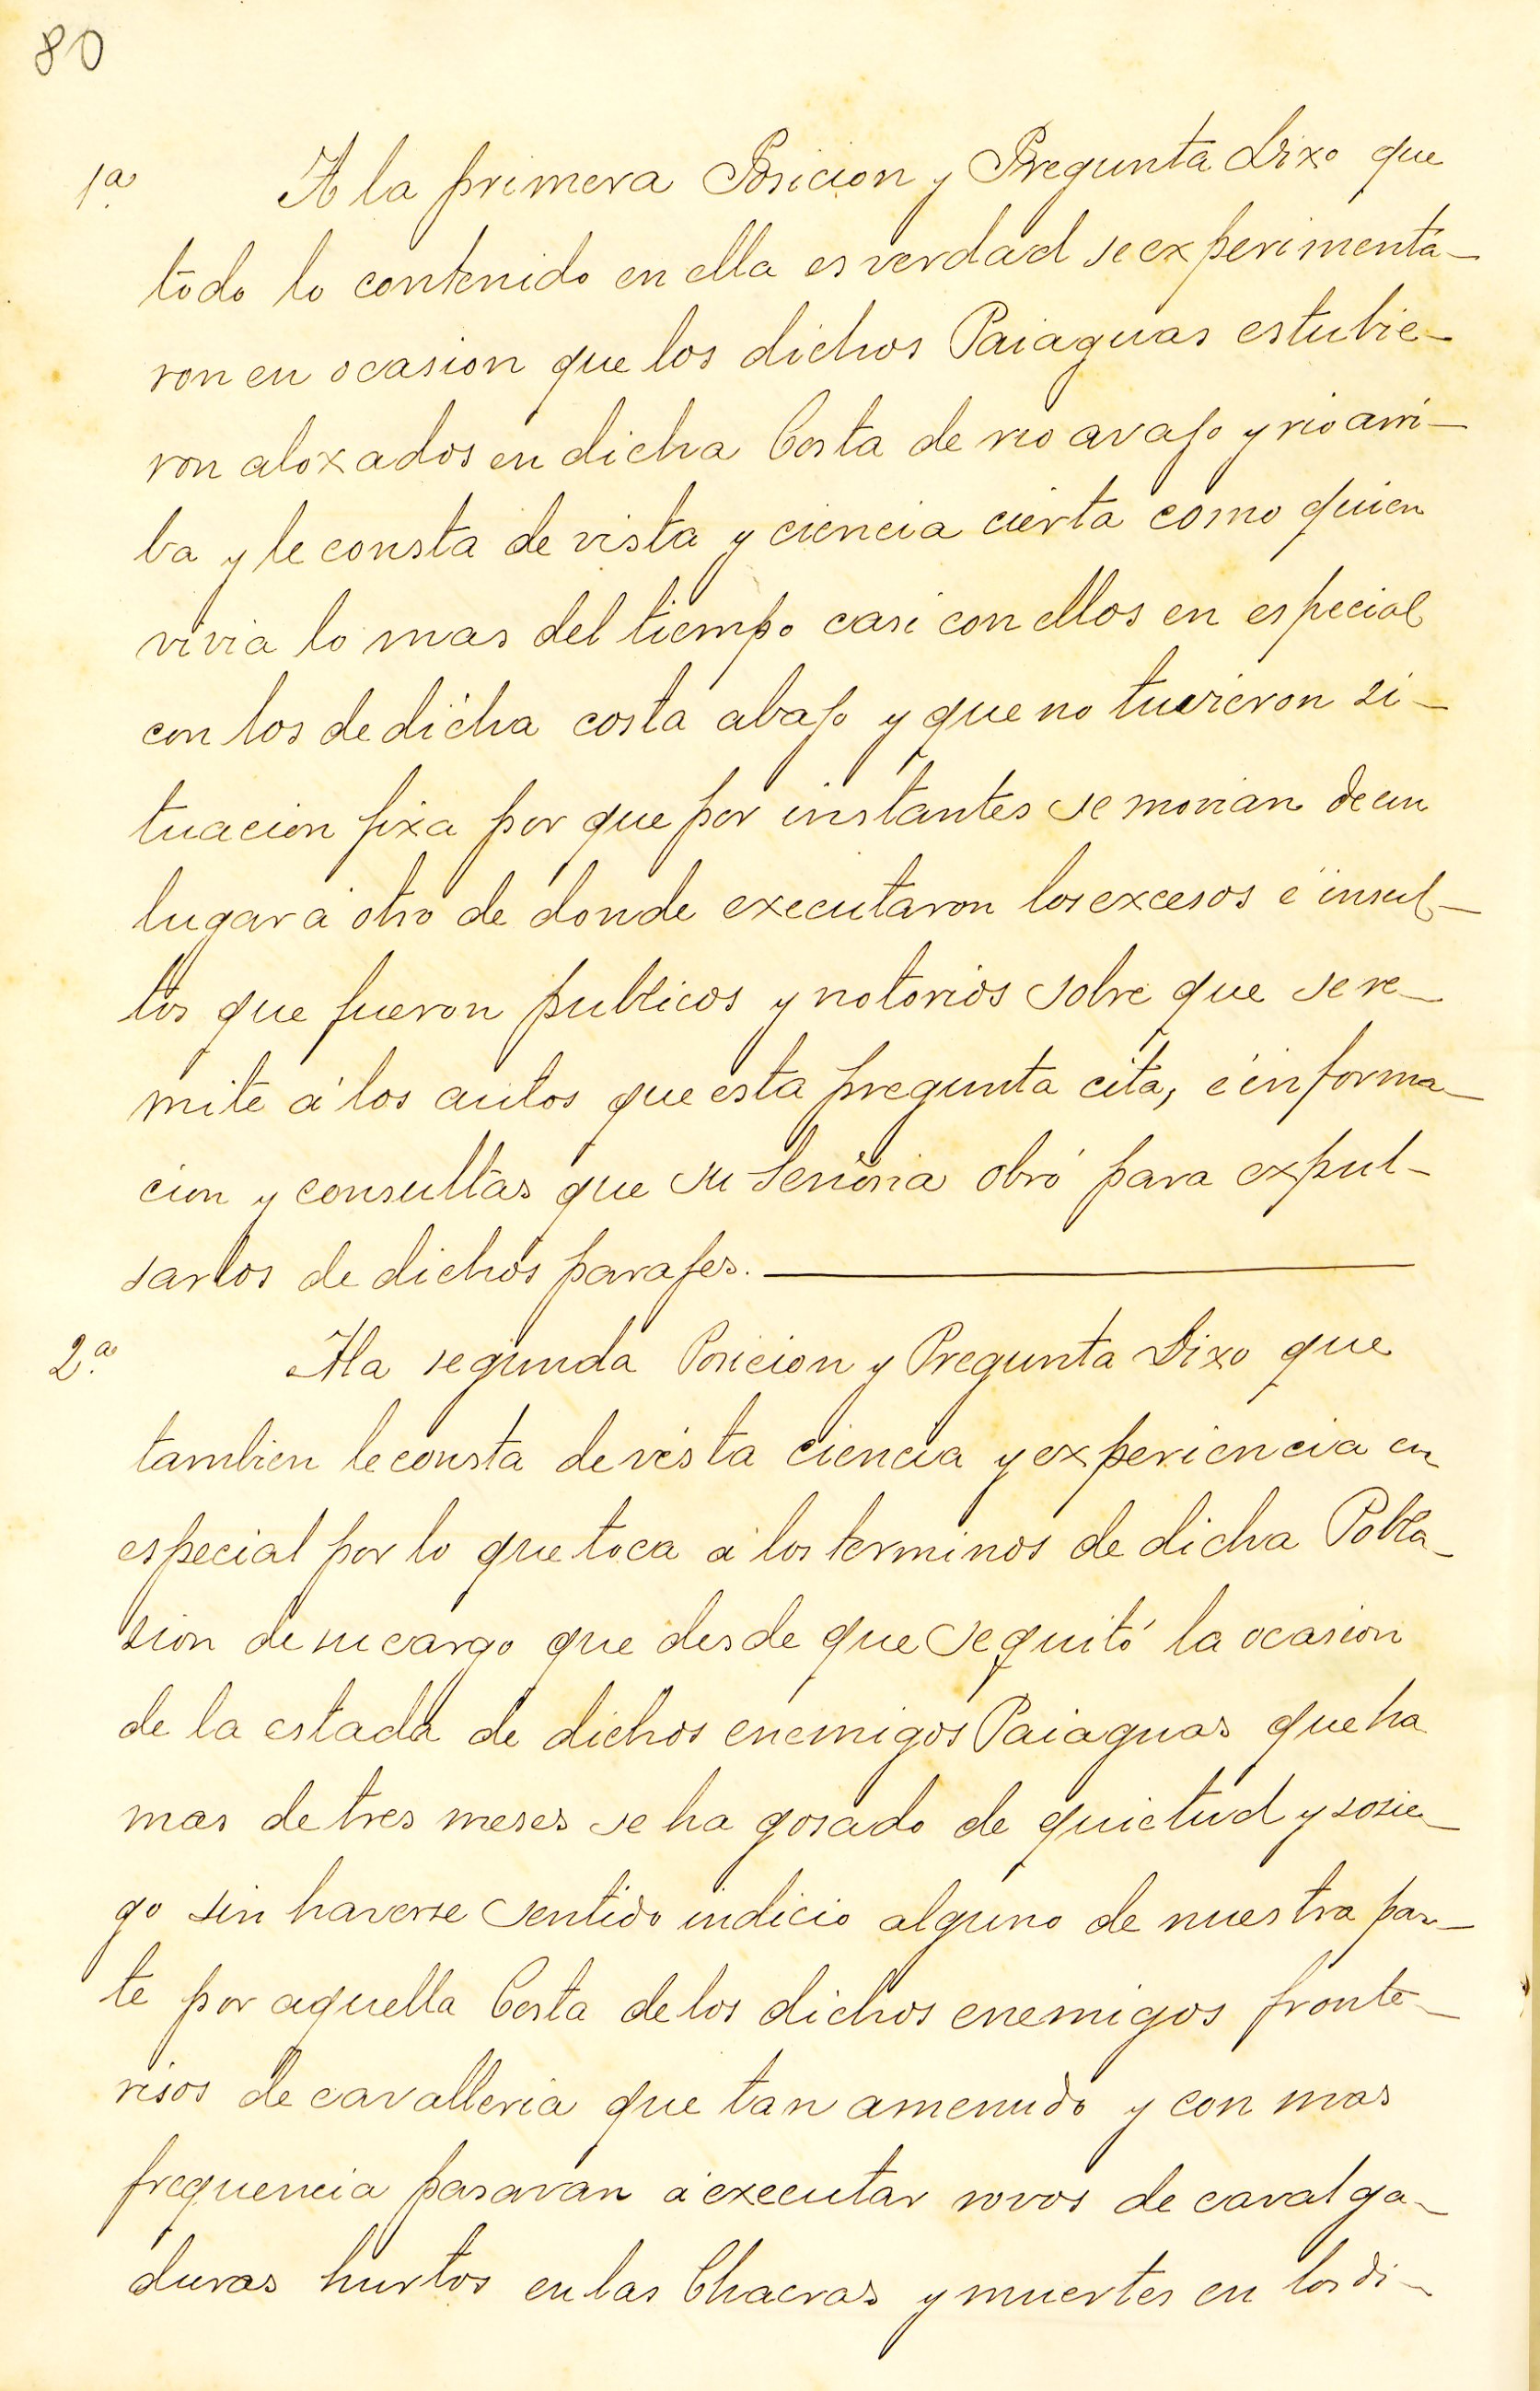 80
1ª. A la primera Posicion y Pregunta Dixo que
todo lo contenido en ella es verdad se experimenta-
ron en ocasion que los dichos Paiaguas estubie-
ron aloxados en dicha Costa de rio avajo y rio arri-
ba y le consta de vista y ciencia cierta como quien
vivia lo mas del tiempo casi con ellos en especial
con los de dicha costa abajo y que no tuvieron si-
tuacion fixa por que por instantes se movian de un
lugar á otro de donde executaron los excesos é insul-
tos que fueron publicos y notorios sobre que se re-
mite á los autos que esta pregunta cita, é informa-
cion y consultas que su Señoria obró para expul-
sarlos de dichos parajes.
2ª. A la segunda Posicion y Pregunta Dixo que
tambien le consta de vista ciencia y experiencia en
especial por lo que toca á los terminos de dicha Pobla-
sion de su cargo que desde que se quitó la ocasion
de la estada de dichos enemigos Paiaguas que ha
mas de tres meses se ha gosado de quietud y sosie-
go sin haverse sentido indicio alguno de nuestra par-
te por aquella Costa de los dichos enemigos fronte-
risos de cavalleria que tan amenudo y con mas
frequencia pasavan á executar rovos de cavalga-
duras hurtos en las Chacras y muertes en los di-